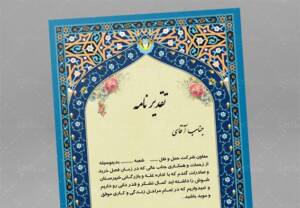 تقدیر نامه
جناب آقای
معاون شرکت حمل و نقل ...... شعبه ...... بدینوسیله
از زحمات و همکاری جناب عالی که در زمان فصل خرید
و صادرات گندم که با اداره غله و بازرگانی شهرستان
شوش را داشته اید کمال تشکر و قدر دانی رو داریم
و امیدواریم که در تمام مراحل زندگی و کاری موفق
و موید باشید.